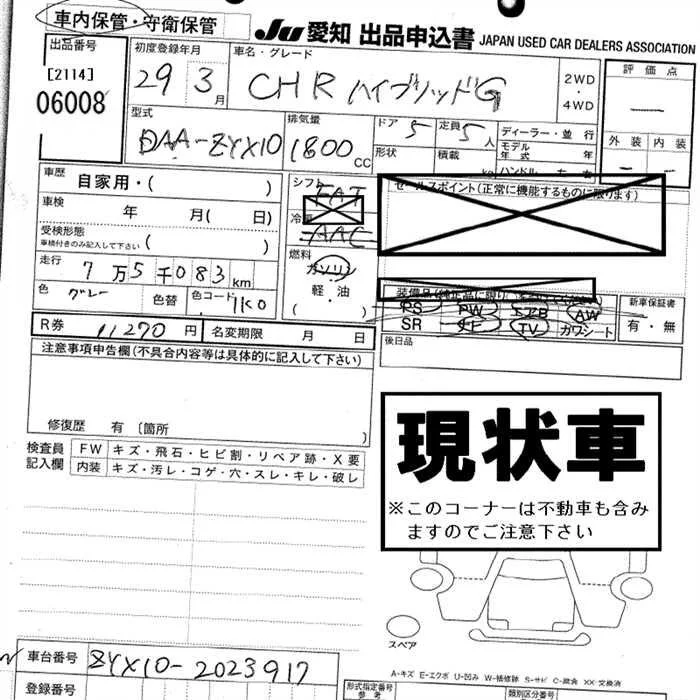 車内保管・守衛保管
JU 愛知 出品申込書 JAPAN USED CAR DEALERS ASSOCIATION
出品番号
[2114]
06008
初度登録年月
29 3月
車名・グレード
CHR ハイブリッドG
2WD
・
4WD
評価点
—
外装 内装
— —
型式
DAA-ZYX10
排気量
1800cc
ドア 5
定員 5人
形状
積載 kg
ディーラー・並行
モデル年式 年
ハンドル 左 右
車歴 自家用・( )
車検 年 月( 日)
受検形態
車検付きのみ記入して下さい ( )
走行 7万5千083km
色 グレー 色替 色コード 1K0
シフト
FAT
冷房
AAC
燃料
ガソリン
軽・油
( )
セールスポイント(正常に機能するものに限ります)
装備品(純正品に限り)
PS PW エアB AW
SR ナビ TV カワシート
新車保証書
有・無
後日品
R券 11270円
名変期限 月 日
注意事項申告欄(不具合内容等は具体的に記入して下さい)
修復歴 有 〔箇所 〕
検査員記入欄
FW キズ・飛石・ヒビ割・リペア跡・X要
内装 キズ・汚レ・コゲ・穴・スレ・キレ・破レ
現状車
※このコーナーは不動車も含み
ますのでご注意下さい
スペア
A-キズ E-エクボ U-凹み W-補修跡 S-サビ C-腐食 XX 交換済
車台番号 ZYX10-2023917
登録番号
形式指定番号
類別区分番号
参考